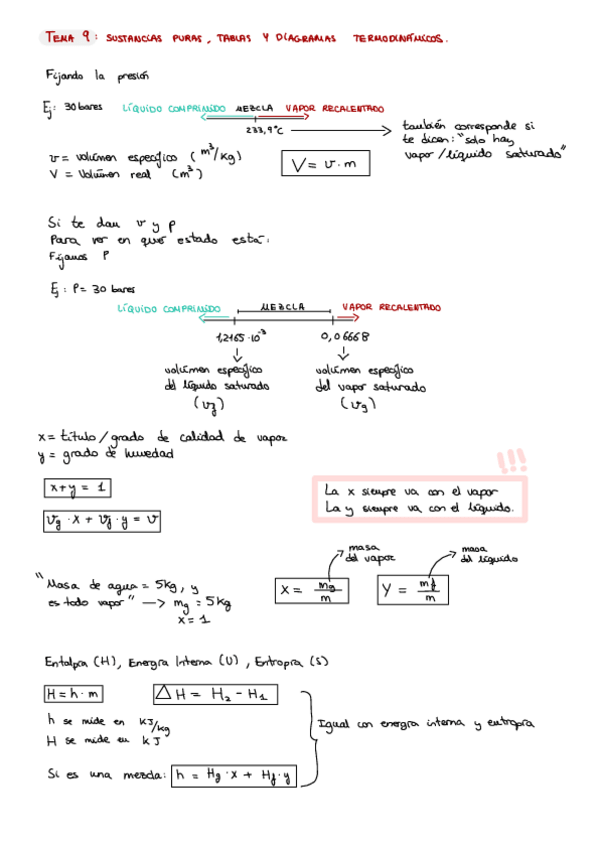 TEMA 9: SUSTANCIAS PURAS, TABLAS Y DIAGRAMAS TERMODINÁMICOS.
Fijando la presión
Ej: 30 bares LÍQUIDO COMPRIMIDO MEZCLA VAPOR RECALENTADO
233,9°C
también corresponde si
te dicen: "solo hay
vapor/líquido saturado"
v = volúmen específico (m³/kg)
V = Volúmen real (m³)
V = v · m
Si te dan v y p
Para ver en que estado está:
Fijamos P
Ej: P= 30 bares
LÍQUIDO COMPRIMIDO MEZCLA VAPOR RECALENTADO
1,2165·10⁻³ 0,06668
volúmen específico
del líquido saturado
(vf)
volúmen específico
del vapor saturado
(vg)
x = título/grado de calidad de vapor
y = grado de humedad
x+y = 1
vg · x + vf · y = v
!!!
La x siempre va con el vapor
La y siempre va con el líquido.
"Masa de agua = 5kg, y
es todo vapor" —> mg = 5kg
x = 1
masa
del vapor
X = mg/m
masa
del líquido
Y = mf/m
Entalpía (H), Energía Interna (U), Entropía (S)
H = h · m
ΔH = H₂ - H₁
h se mide en kJ/kg
H se mide en kJ
Igual con energía interna y entropía
Si es una mezcla: h = Hg · x + Hf · y